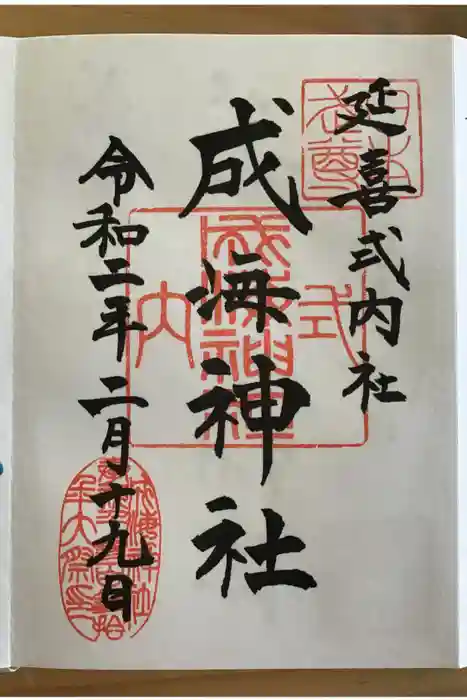 延喜式内社
成海神社
令和二年二月十九日
式内
成海神社